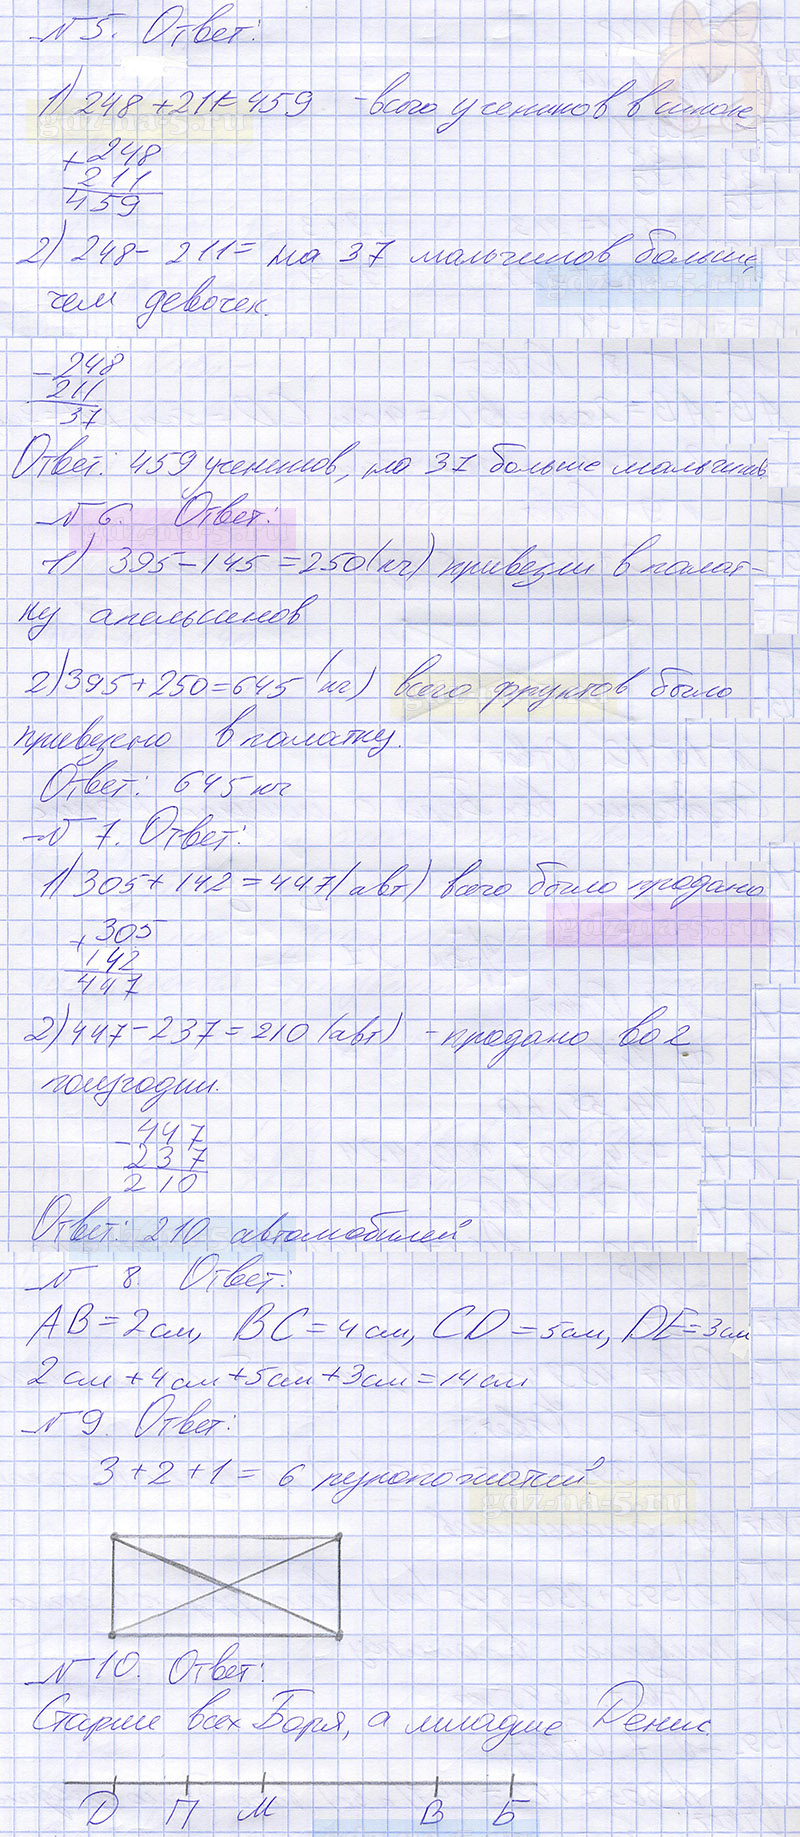 №5. Ответ:
1) 248 + 211 = 459 - всего учеников в школе
gdz-na-5.ru
+ 248
211
459
2) 248 - 211 = на 37 мальчиков больше,
чем девочек.
- 248
211
37
Ответ: 459 учеников, на 37 больше мальчиков
№ 6. Ответ:
1) 395 - 145 = 250 (кг) привезли в палат-
ку апельсинов
2) 395 + 250 = 645 (кг) всего фруктов было
привезено в палатку.
Ответ: 645 кг
№ 7. Ответ:
1) 305 + 142 = 447 (авт) всего было продано
gdz-na-5.ru
+ 305
142
447
2) 447 - 237 = 210 (авт) - продано во 2
полугодии.
- 447
237
210
Ответ: 210 автомобилей
№ 8. Ответ:
AB = 2 см, BC = 4 см, CD = 5 см, DE = 3 см
2 см + 4 см + 5 см + 3 см = 14 см
№ 9. Ответ:
3 + 2 + 1 = 6 рукопожатий
gdz-na-5.ru
№ 10. Ответ:
Старше всех Боря, а младше Денис.
Д П М В Б